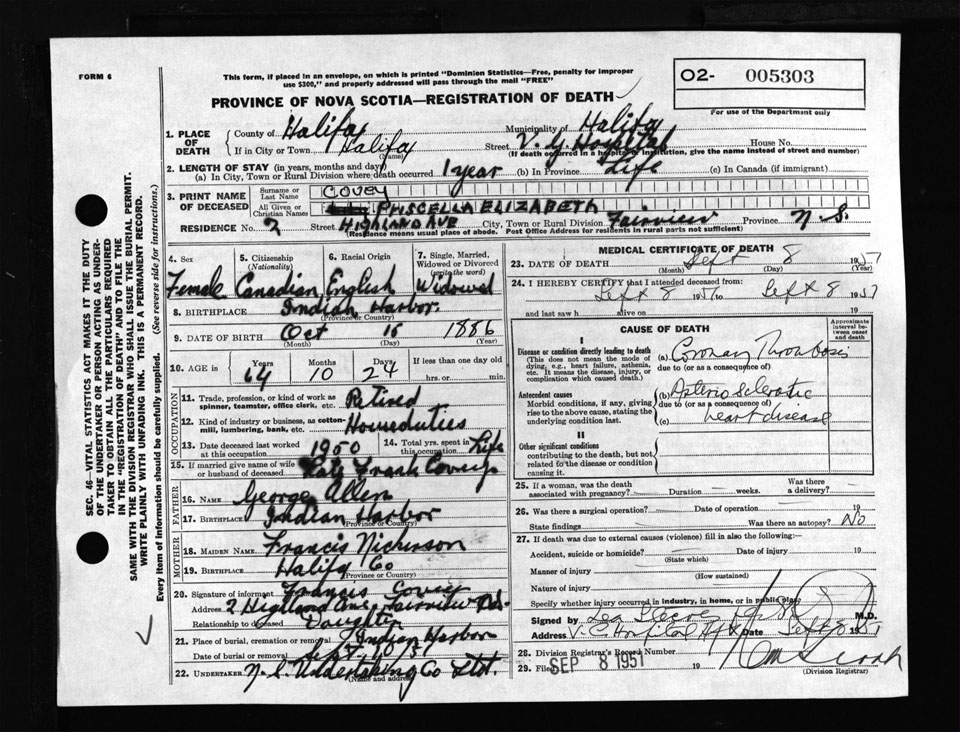 FORM 6
This form, if placed in an envelope, on which is printed "Dominion Statistics—Free, penalty for improper
use $300," and properly addressed will pass through the mail "FREE"
O2- 005303
For use of the Department only
PROVINCE OF NOVA SCOTIA—REGISTRATION OF DEATH
1. PLACE OF DEATH County of Halifax Municipality of Halifax
If in City or Town Halifax (Name) Street V. G. Hospital House No.
(If death occurred in a hospital or institution, give the name instead of street and number)
2. LENGTH OF STAY (in years, months and days)
(a) In City, Town or Rural Division where death occurred 1 year (b) In Province Life (c) In Canada (if immigrant)
3. PRINT NAME OF DECEASED Surname or Last Name COVEY
All Given or Christian Names PHISCELLA ELIZABETH
RESIDENCE No. 2 Street HIGHLAND AVE City, Town or Rural Division Fairview Province N. S.
(Residence means usual place of abode. Post Office Address for residents in rural parts not sufficient)
4. Sex 5. Citizenship (Nationality) 6. Racial Origin 7. Single, Married, Widowed or Divorced (write the word)
Female Canadian English Widowed
8. BIRTHPLACE Indian Harbor (Province or Country)
9. DATE OF BIRTH Oct 15 1886
(Month) (Day) (Year)
10. AGE is in Years 64 Months 10 Days 24 If less than one day old hrs. or min.
OCCUPATION
11. Trade, profession, or kind of work as spinner, teamster, office clerk, etc. Retired
12. Kind of industry or business, as cotton mill, lumbering, bank, etc. Homeduties
13. Date deceased last worked at this occupation 1950 14. Total yrs. spent in this occupation Life
15. If married give name of wife or husband of deceased Late Frank Covey
FATHER
16. NAME George Allen
17. BIRTHPLACE Indian Harbor (Province or Country)
MOTHER
18. MAIDEN NAME Francis Nickerson
19. BIRTHPLACE Halifax Co (Province or Country)
20. Signature of informant Francis Covey
Address 2 Highland Ave Fairview N.S.
Relationship to deceased Daughter
21. Place of burial, cremation or removal Indian Harbor
Date of burial or removal Sept 10/51
22. UNDERTAKER N. S. Undertaking Co Ltd.
(Name and address)
MEDICAL CERTIFICATE OF DEATH
23. DATE OF DEATH Sept 8 1951
(Month) (Day) (Year)
24. I HEREBY CERTIFY that I attended deceased from:
Sept 8 1951 to Sept 8 1951
and last saw h alive on 19
CAUSE OF DEATH
Approximate interval between onset and death
I
Disease or condition directly leading to death
(This does not mean the mode of dying, e.g., heart failure, asthenia, etc. It means the disease, injury, or complication which caused death.)
(a) Coronary Thrombosis
due to (or as a consequence of)
Antecedent causes
Morbid conditions, if any, giving rise to the above cause, stating the underlying condition last.
(b) Arterio sclerotic
due to (or as a consequence of)
(c) heart disease
II
Other significant conditions
contributing to the death, but not related to the disease or condition causing it.
25. If a woman, was the death associated with pregnancy? Duration weeks. Was there a delivery?
26. Was there a surgical operation? Date of operation 19
State findings Was there an autopsy? No
27. If death was due to external causes (violence) fill in also the following:
Accident, suicide or homicide? Date of injury 19
(State which)
Manner of injury
(How sustained)
Nature of injury
Specify whether injury occurred in industry, in home, or in public place
Signed by M.D.
Address V. G. Hospital Hfx Date Sept 8 1951
28. Division Registrar's Record Number
29. Filed SEP 8 1951 19
(Division Registrar)
SEC. 46—VITAL STATISTICS ACT MAKES IT THE DUTY
OF THE UNDERTAKER OR PERSON ACTING AS UNDER-
TAKER TO OBTAIN ALL THE PARTICULARS REQUIRED
IN THE "REGISTRATION OF DEATH" AND TO FILE THE
SAME WITH THE DIVISION REGISTRAR WHO SHALL ISSUE THE BURIAL PERMIT.
WRITE PLAINLY WITH UNFADING INK. THIS IS A PERMANENT RECORD.
Every item of Information should be carefully supplied. (See reverse side for instructions.)